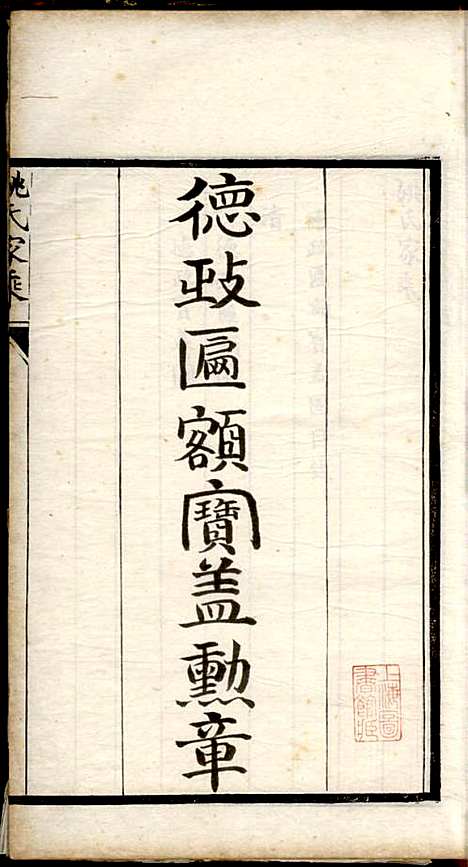 德政匾額寶盖勳章
姚氏家乘
上海圖
書館藏